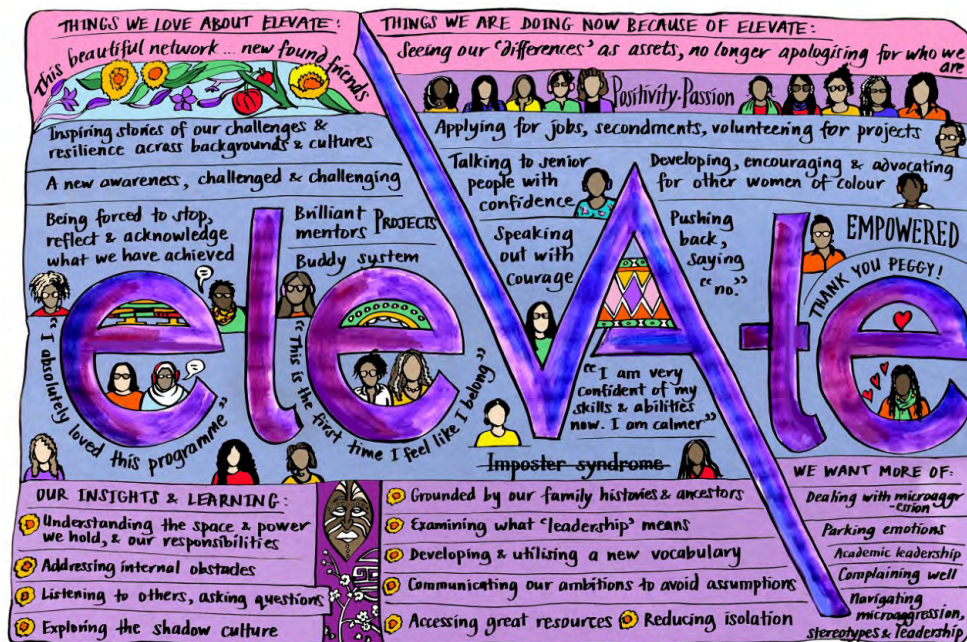 THINGS WE LOVE ABOUT ELEVATE:
This beautiful network... new found friends
Inspiring stories of our challenges &
resilience across backgrounds & cultures
A new awareness, challenged & challenging
Being forced to stop,
reflect & acknowledge
what we have achieved
Brilliant
mentors
PROJECTS
Buddy system
"I absolutely loved this programme"
"This is the first time I feel like I belong"
elevate
THINGS WE ARE DOING NOW BECAUSE OF ELEVATE:
Seeing our 'differences' as assets, no longer apologising for who we
are
Positivity. Passion
Applying for jobs, secondments, volunteering for projects
Talking to senior
people with
confidence
Developing, encouraging & advocating
for other women of colour
Speaking
out with
courage
Pushing
back,
saying
"no."
EMPOWERED
THANK YOU PEGGY!
"I am very
confident of my
skills & abilities
now. I am calmer"
Imposter syndrome
OUR INSIGHTS & LEARNING:
Understanding the space & power
we hold, & our responsibilities
Addressing internal obstacles
Listening to others, asking questions
Exploring the shadow culture
Grounded by our family histories & ancestors
Examining what 'leadership' means
Developing & utilising a new vocabulary
Communicating our ambitions to avoid assumptions
Accessing great resources
Reducing isolation
WE WANT MORE OF:
Dealing with microaggr
-ession
Parking emotions
Academic leadership
Complaining well
Navigating
microaggression,
stereotypes & leadership